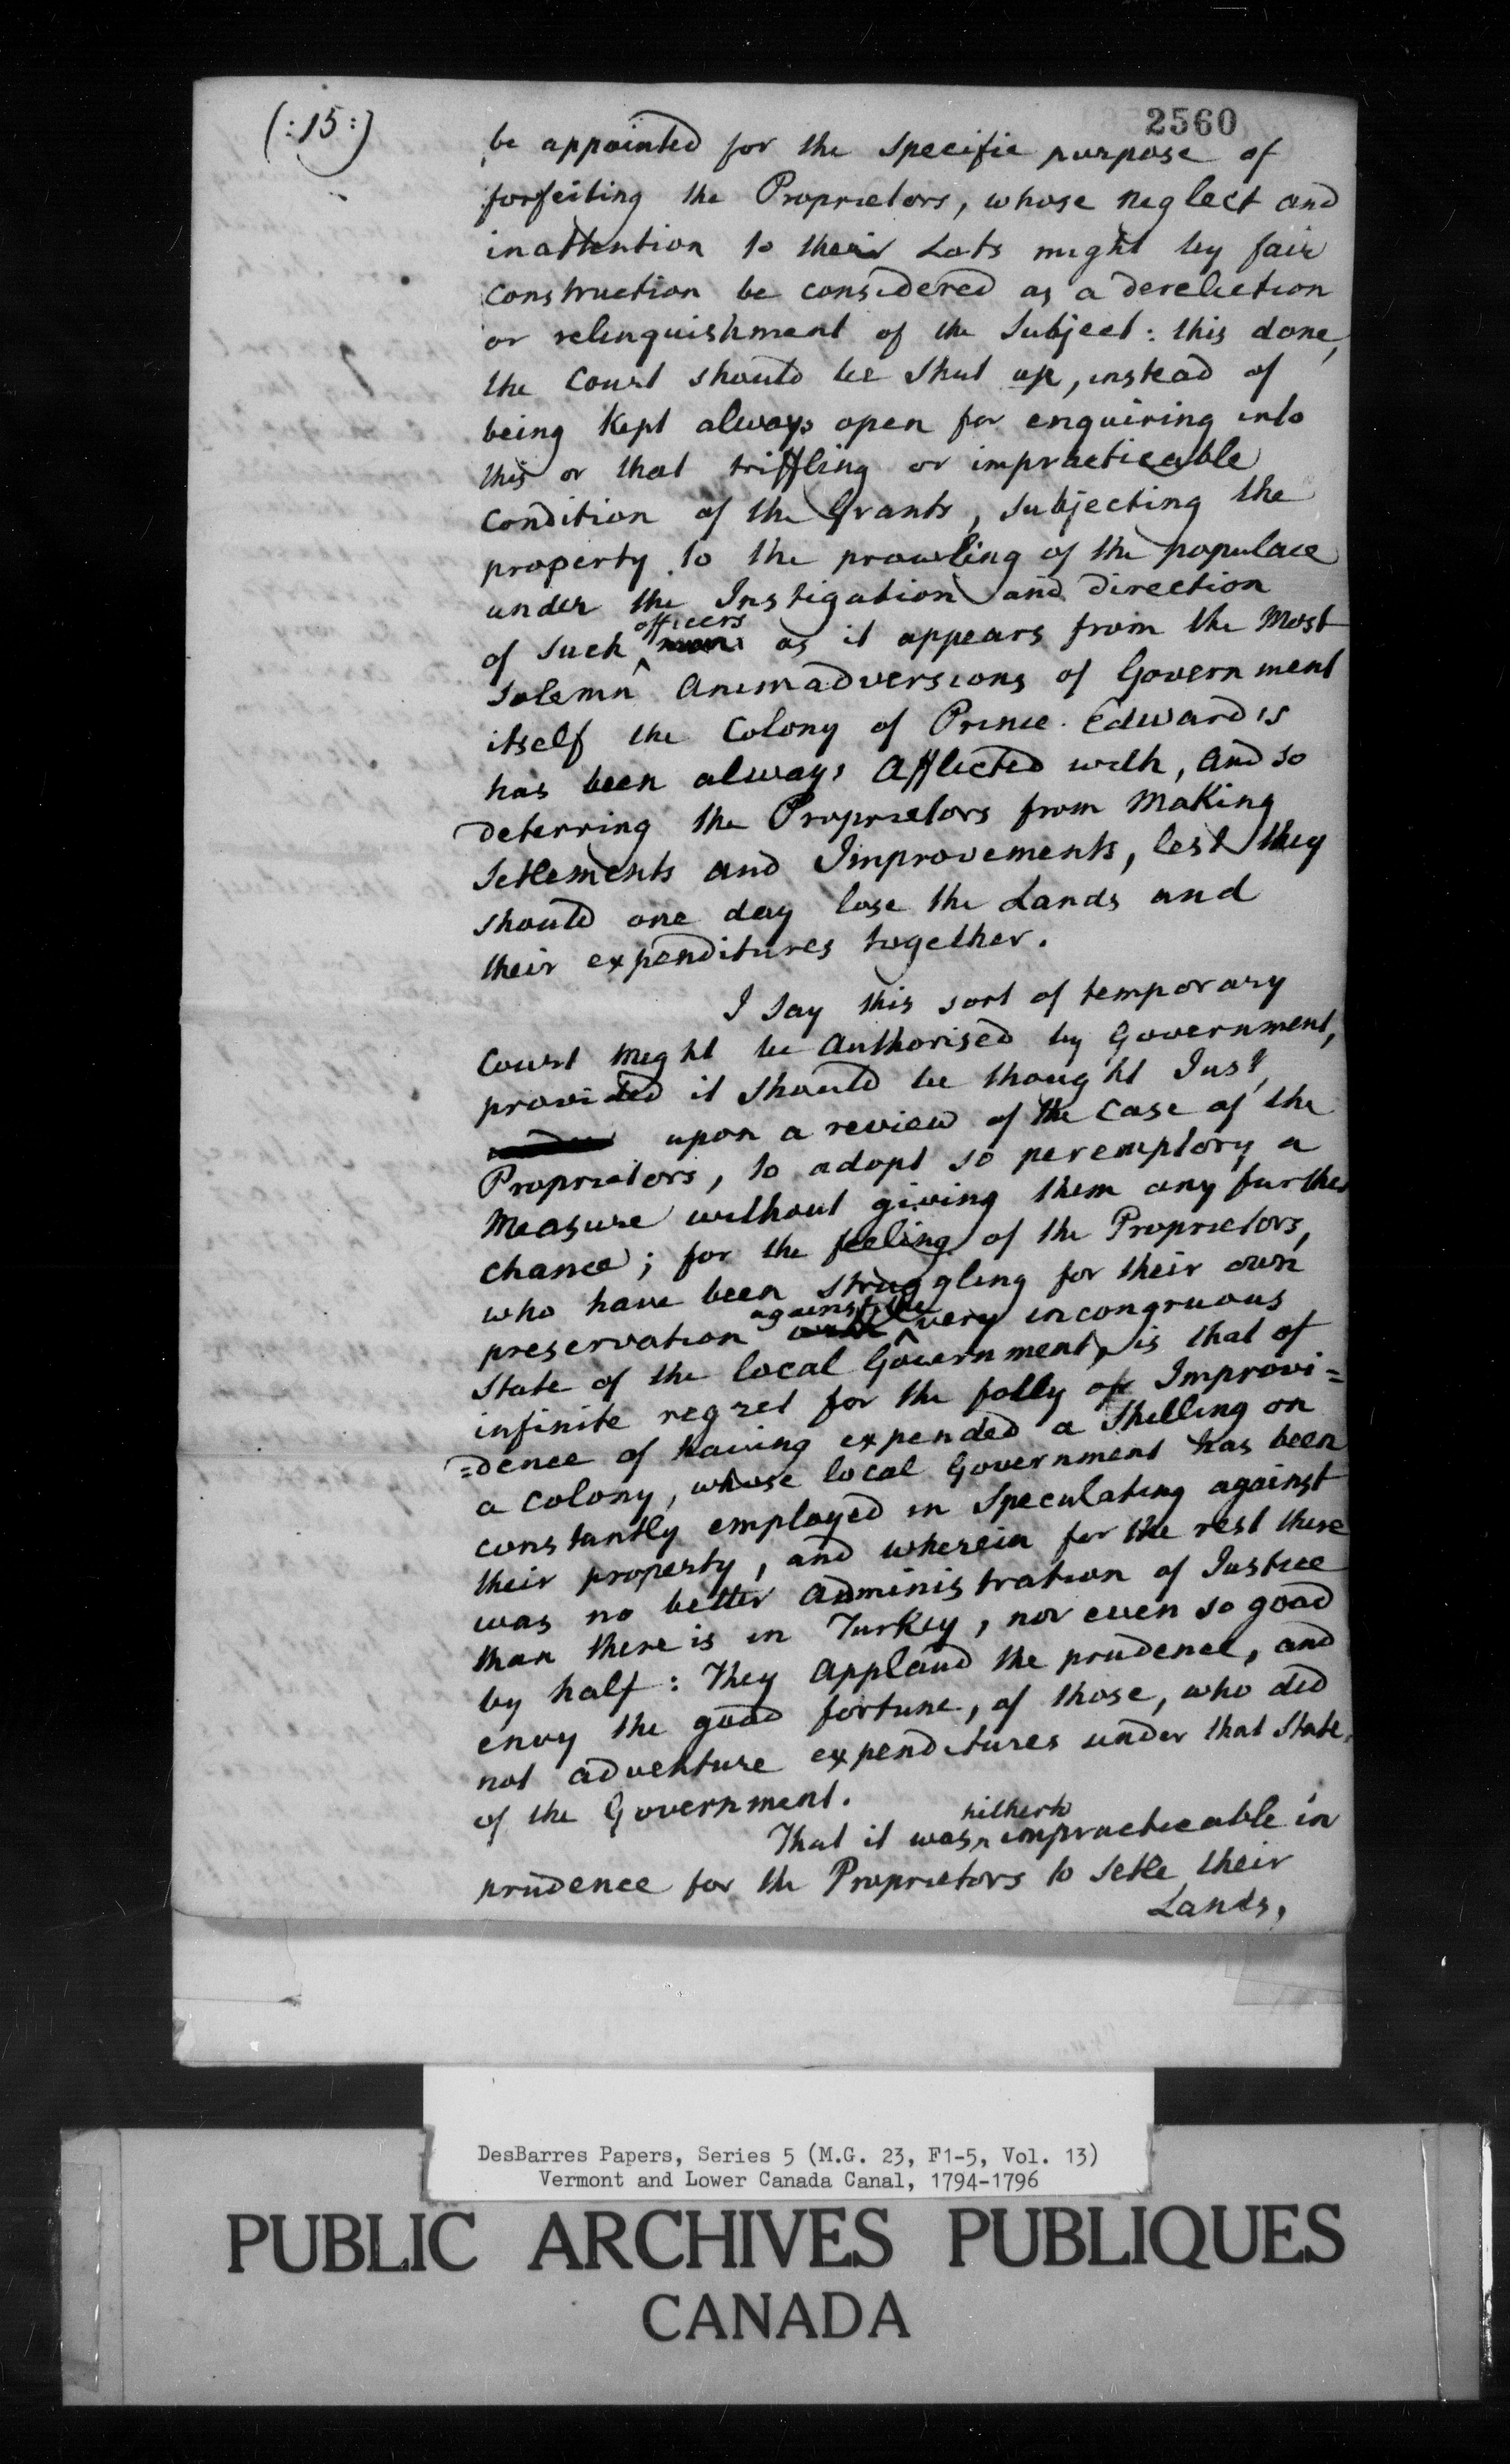 (:15:)
2560
be appointed for the specific purpose of
forfeiting the Proprietors, whose neglect and
inattention to their Lots might by fair
construction be considered as a dereliction
or relinquishment of the Subject: this done,
the Court should be shut up, instead of
being kept always open for enquiring into
this or that triffling or impracticable
Condition of the Grants, subjecting the
property to the prowling of the populace
under the Instigation and direction
officers
of such as it appears from the most
solemn animadversions of Government
itself the Colony of Prince Edward is
has been always afflicted with, and so
deterring the Proprietors from making
Setlements and Improvements, lest they
should one day lose the Lands and
their expenditures together.
I say this sort of temporary
Court might be authorised by Government,
provided it should be thought Just,
upon a review of the case of the
Proprietors, to adopt so peremptory a
measure without giving them any further
chance; for the feeling of the Proprietors,
who have been struggling for their own
against the
preservation very incongruous
State of the local Government, is that of
infinite regret for the folly or Improvi=
=dence of having expended a Shilling on
a colony, whose local Government has been
constantly employed in speculating against
their property, and wherein for the rest there
was no better administration of Justice
than there is in Turkey, nor even so good
by half: They applaud the prudence, and
envy the good fortune, of those, who did
not adventure expenditures under that State
of the Government.
hitherto
That it was impracticable in
prudence for the Proprietors to setle their
Lands,
DesBarres Papers, Series 5 (M.G. 23, F1-5, Vol. 13)
Vermont and Lower Canada Canal, 1794-1796
PUBLIC ARCHIVES PUBLIQUES
CANADA